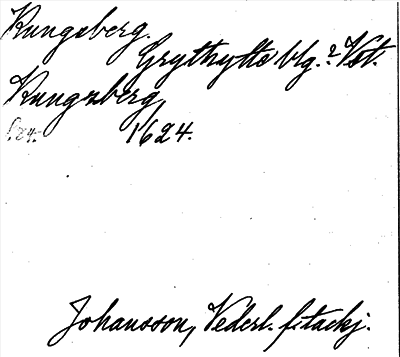 Kungsberg.
Grythytte blg. ? Vst.
Kungzberg
1624.
Johansson, Vederl. f. tackj.